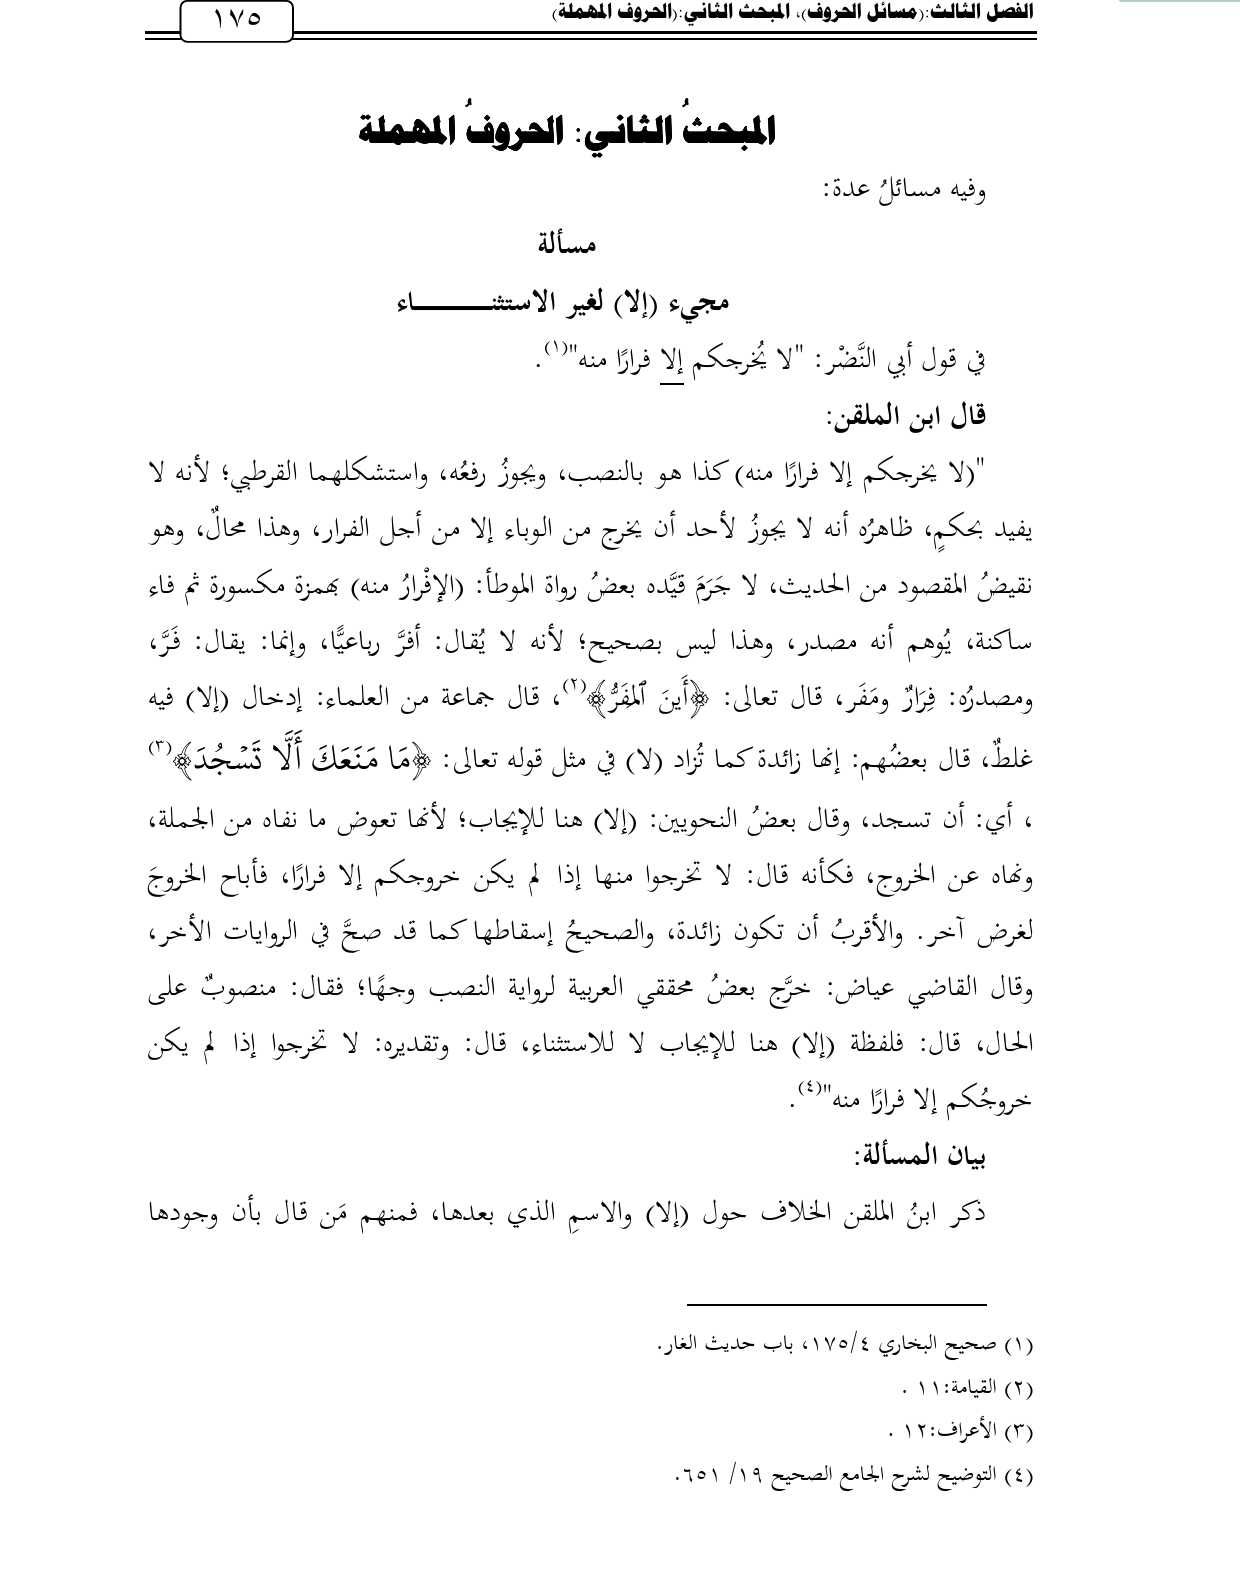 الفصل الثالث:(مسائل الحروف)، المبحث الثاني:(الحروف المهملة)
١٧٥
المبحثُ الثاني: الحروفُ المهملة
وفيه مسائلُ عدة:
مسألة
مجيء (إلا) لغير الاستثنـــــــــــاء
في قول أبي النَّضْر: "لا يُخرجكم إلا فرارًا منه"(١).
قال ابن الملقن:
"(لا يخرجكم إلا فرارًا منه) كذا هو بالنصب، ويجوزُ رفعُه، واستشكلهما القرطبي؛ لأنه لا
يفيد بحكمٍ، ظاهرُه أنه لا يجوزُ لأحد أن يخرج من الوباء إلا من أجل الفرار، وهذا محالٌ، وهو
نقيضُ المقصود من الحديث، لا جَرَمَ قيَّده بعضُ رواة الموطأ: (الإفْرارُ منه) بهمزة مكسورة ثم فاء
ساكنة، يُوهم أنه مصدر، وهذا ليس بصحيح؛ لأنه لا يُقال: أفرَّ رباعيًّا، وإنما: يقال: فَرَّ،
ومصدرُه: فِرَارٌ ومَفَر، قال تعالى: ﴿أَينَ ٱلمَفَرُّ﴾(٢)، قال جماعة من العلماء: إدخال (إلا) فيه
غلطٌ، قال بعضُهم: إنها زائدة كما تُزاد (لا) في مثل قوله تعالى: ﴿مَا مَنَعَكَ أَلَّا تَسۡجُدَ﴾(٣)
، أي: أن تسجد، وقال بعضُ النحويين: (إلا) هنا للإيجاب؛ لأنها تعوض ما نفاه من الجملة،
ونهاه عن الخروج، فكأنه قال: لا تخرجوا منها إذا لم يكن خروجكم إلا فرارًا، فأباح الخروجَ
لغرض آخر. والأقربُ أن تكون زائدة، والصحيحُ إسقاطها كما قد صحَّ في الروايات الأخر،
وقال القاضي عياض: خرَّج بعضُ محققي العربية لرواية النصب وجهًا؛ فقال: منصوبٌ على
الحال، قال: فلفظة (إلا) هنا للإيجاب لا للاستثناء، قال: وتقديره: لا تخرجوا إذا لم يكن
خروجُكم إلا فرارًا منه"(٤).
بيان المسألة:
ذكر ابنُ الملقن الخلاف حول (إلا) والاسمِ الذي بعدها، فمنهم مَن قال بأن وجودها
(١) صحيح البخاري ١٧٥/٤، باب حديث الغار.
(٢) القيامة:١١ .
(٣) الأعراف:١٢ .
(٤) التوضيح لشرح الجامع الصحيح ١٩/ ٦٥١.